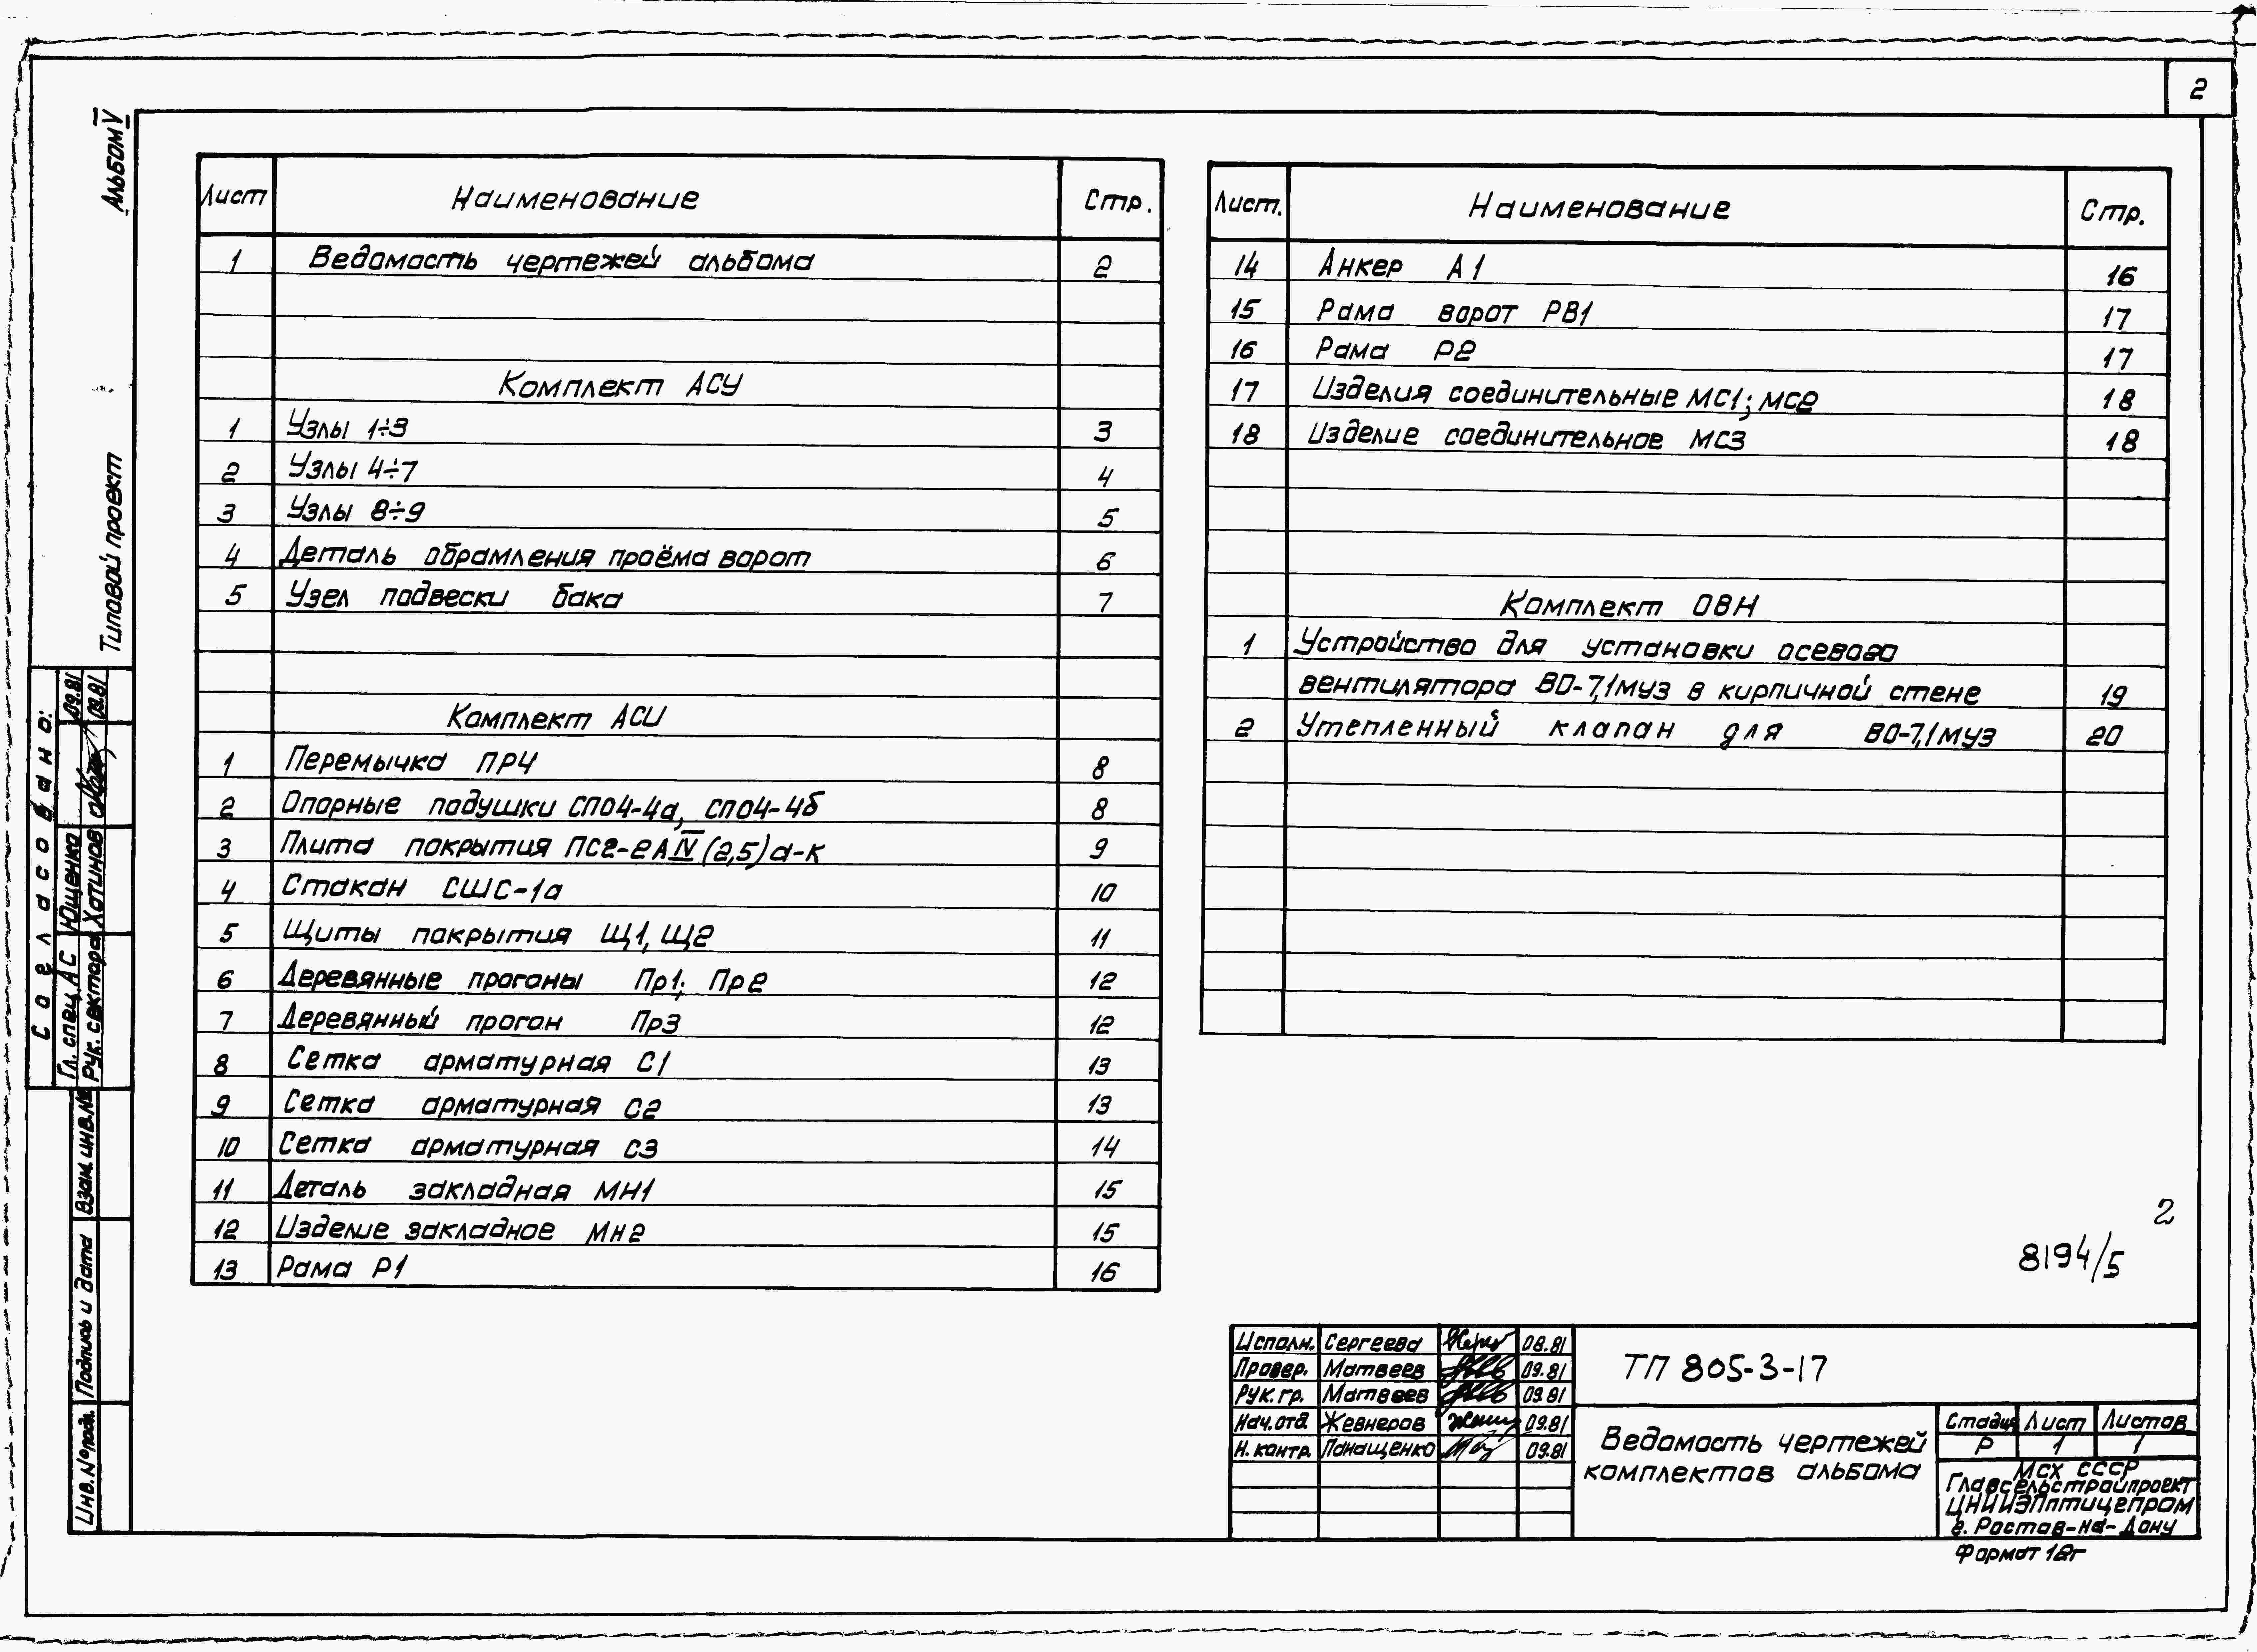 2
Альбом V
Типовой проект
Лист Наименование Стр.
1 Ведомость чертежей альбома 2
Комплект АСУ
1 Узлы 1÷3 3
2 Узлы 4÷7 4
3 Узлы 8÷9 5
4 Деталь обрамления проёма ворот 6
5 Узел подвески бака 7
Комплект АСИ
1 Перемычка ПР4 8
2 Опорные подушки СП04-4а, СП04-4б 8
3 Плита покрытия ПС2-2АIV(2,5)а-к 9
4 Стакан СШС-1а 10
5 Щиты покрытия Щ1, Щ2 11
6 Деревянные прогоны Пр1; Пр2 12
7 Деревянный прогон Пр3 12
8 Сетка арматурная С1 13
9 Сетка арматурная С2 13
10 Сетка арматурная С3 14
11 Деталь закладная МН1 15
12 Изделие закладное Мн2 15
13 Рама Р1 16
Лист. Наименование Стр.
14 Анкер А1 16
15 Рама ворот РВ1 17
16 Рама Р2 17
17 Изделия соединительные МС1; МС2 18
18 Изделие соединительное МС3 18
Комплект ОВН
1 Устройство для установки осевого
вентилятора ВО-7,1муз в кирпичной стене 19
2 Утепленный клапан для ВО-7,1муз 20
2
8194/5
Согласовано:
Гл. спец. АС Ющенко 09.81
Рук. сектора Хотинов 09.81
Взам. инв. №
Подпись и дата
Инв. № подл.
Исполн. Сергеева 08.81
Провер. Матвеев 09.81
Рук. гр. Матвеев 09.81
Нач. отд. Жевнеров 09.81
Н. контр. Панащенко 09.81
ТП 805-3-17
Ведомость чертежей
комплектов альбома
Стадия Лист Листов
Р 1 1
Мсх СССР
Главсельстройпроект
ЦНИИЭПптицепром
г. Ростов-на-Дону
Формат 12г